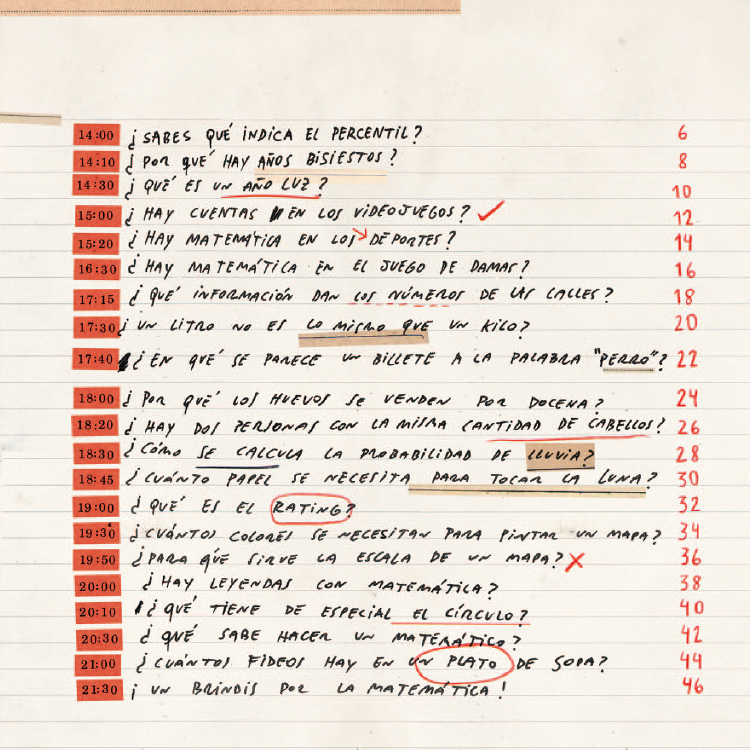 14:00 ¿SABES QUÉ INDICA EL PERCENTIL? 6
14:10 ¿POR QUÉ HAY AÑOS BISIESTOS? 8
14:30 ¿QUÉ ES UN AÑO LUZ? 10
15:00 ¿HAY CUENTAS EN LOS VIDEOJUEGOS? 12
15:20 ¿HAY MATEMÁTICA EN LOS DEPORTES? 14
16:30 ¿HAY MATEMÁTICA EN EL JUEGO DE DAMAS? 16
17:15 ¿QUÉ INFORMACIÓN DAN LOS NÚMEROS DE LAS CALLES? 18
17:30 ¿UN LITRO NO ES LO MISMO QUE UN KILO? 20
17:40 ¿EN QUÉ SE PARECE UN BILLETE A LA PALABRA "PERRO"? 22
18:00 ¿POR QUÉ LOS HUEVOS SE VENDEN POR DOCENA? 24
18:20 ¿HAY DOS PERSONAS CON LA MISMA CANTIDAD DE CABELLOS? 26
18:30 ¿CÓMO SE CALCULA LA PROBABILIDAD DE LLUVIA? 28
18:45 ¿CUÁNTO PAPEL SE NECESITA PARA TOCAR LA LUNA? 30
19:00 ¿QUÉ ES EL RATING? 32
19:30 ¿CUÁNTOS COLORES SE NECESITAN PARA PINTAR UN MAPA? 34
19:50 ¿PARA QUÉ SIRVE LA ESCALA DE UN MAPA? 36
20:00 ¿HAY LEYENDAS CON MATEMÁTICA? 38
20:10 ¿QUÉ TIENE DE ESPECIAL EL CÍRCULO? 40
20:30 ¿QUÉ SABE HACER UN MATEMÁTICO? 42
21:00 ¿CUÁNTOS FIDEOS HAY EN UN PLATO DE SOPA? 44
21:30 ¡UN BRINDIS POR LA MATEMÁTICA! 46